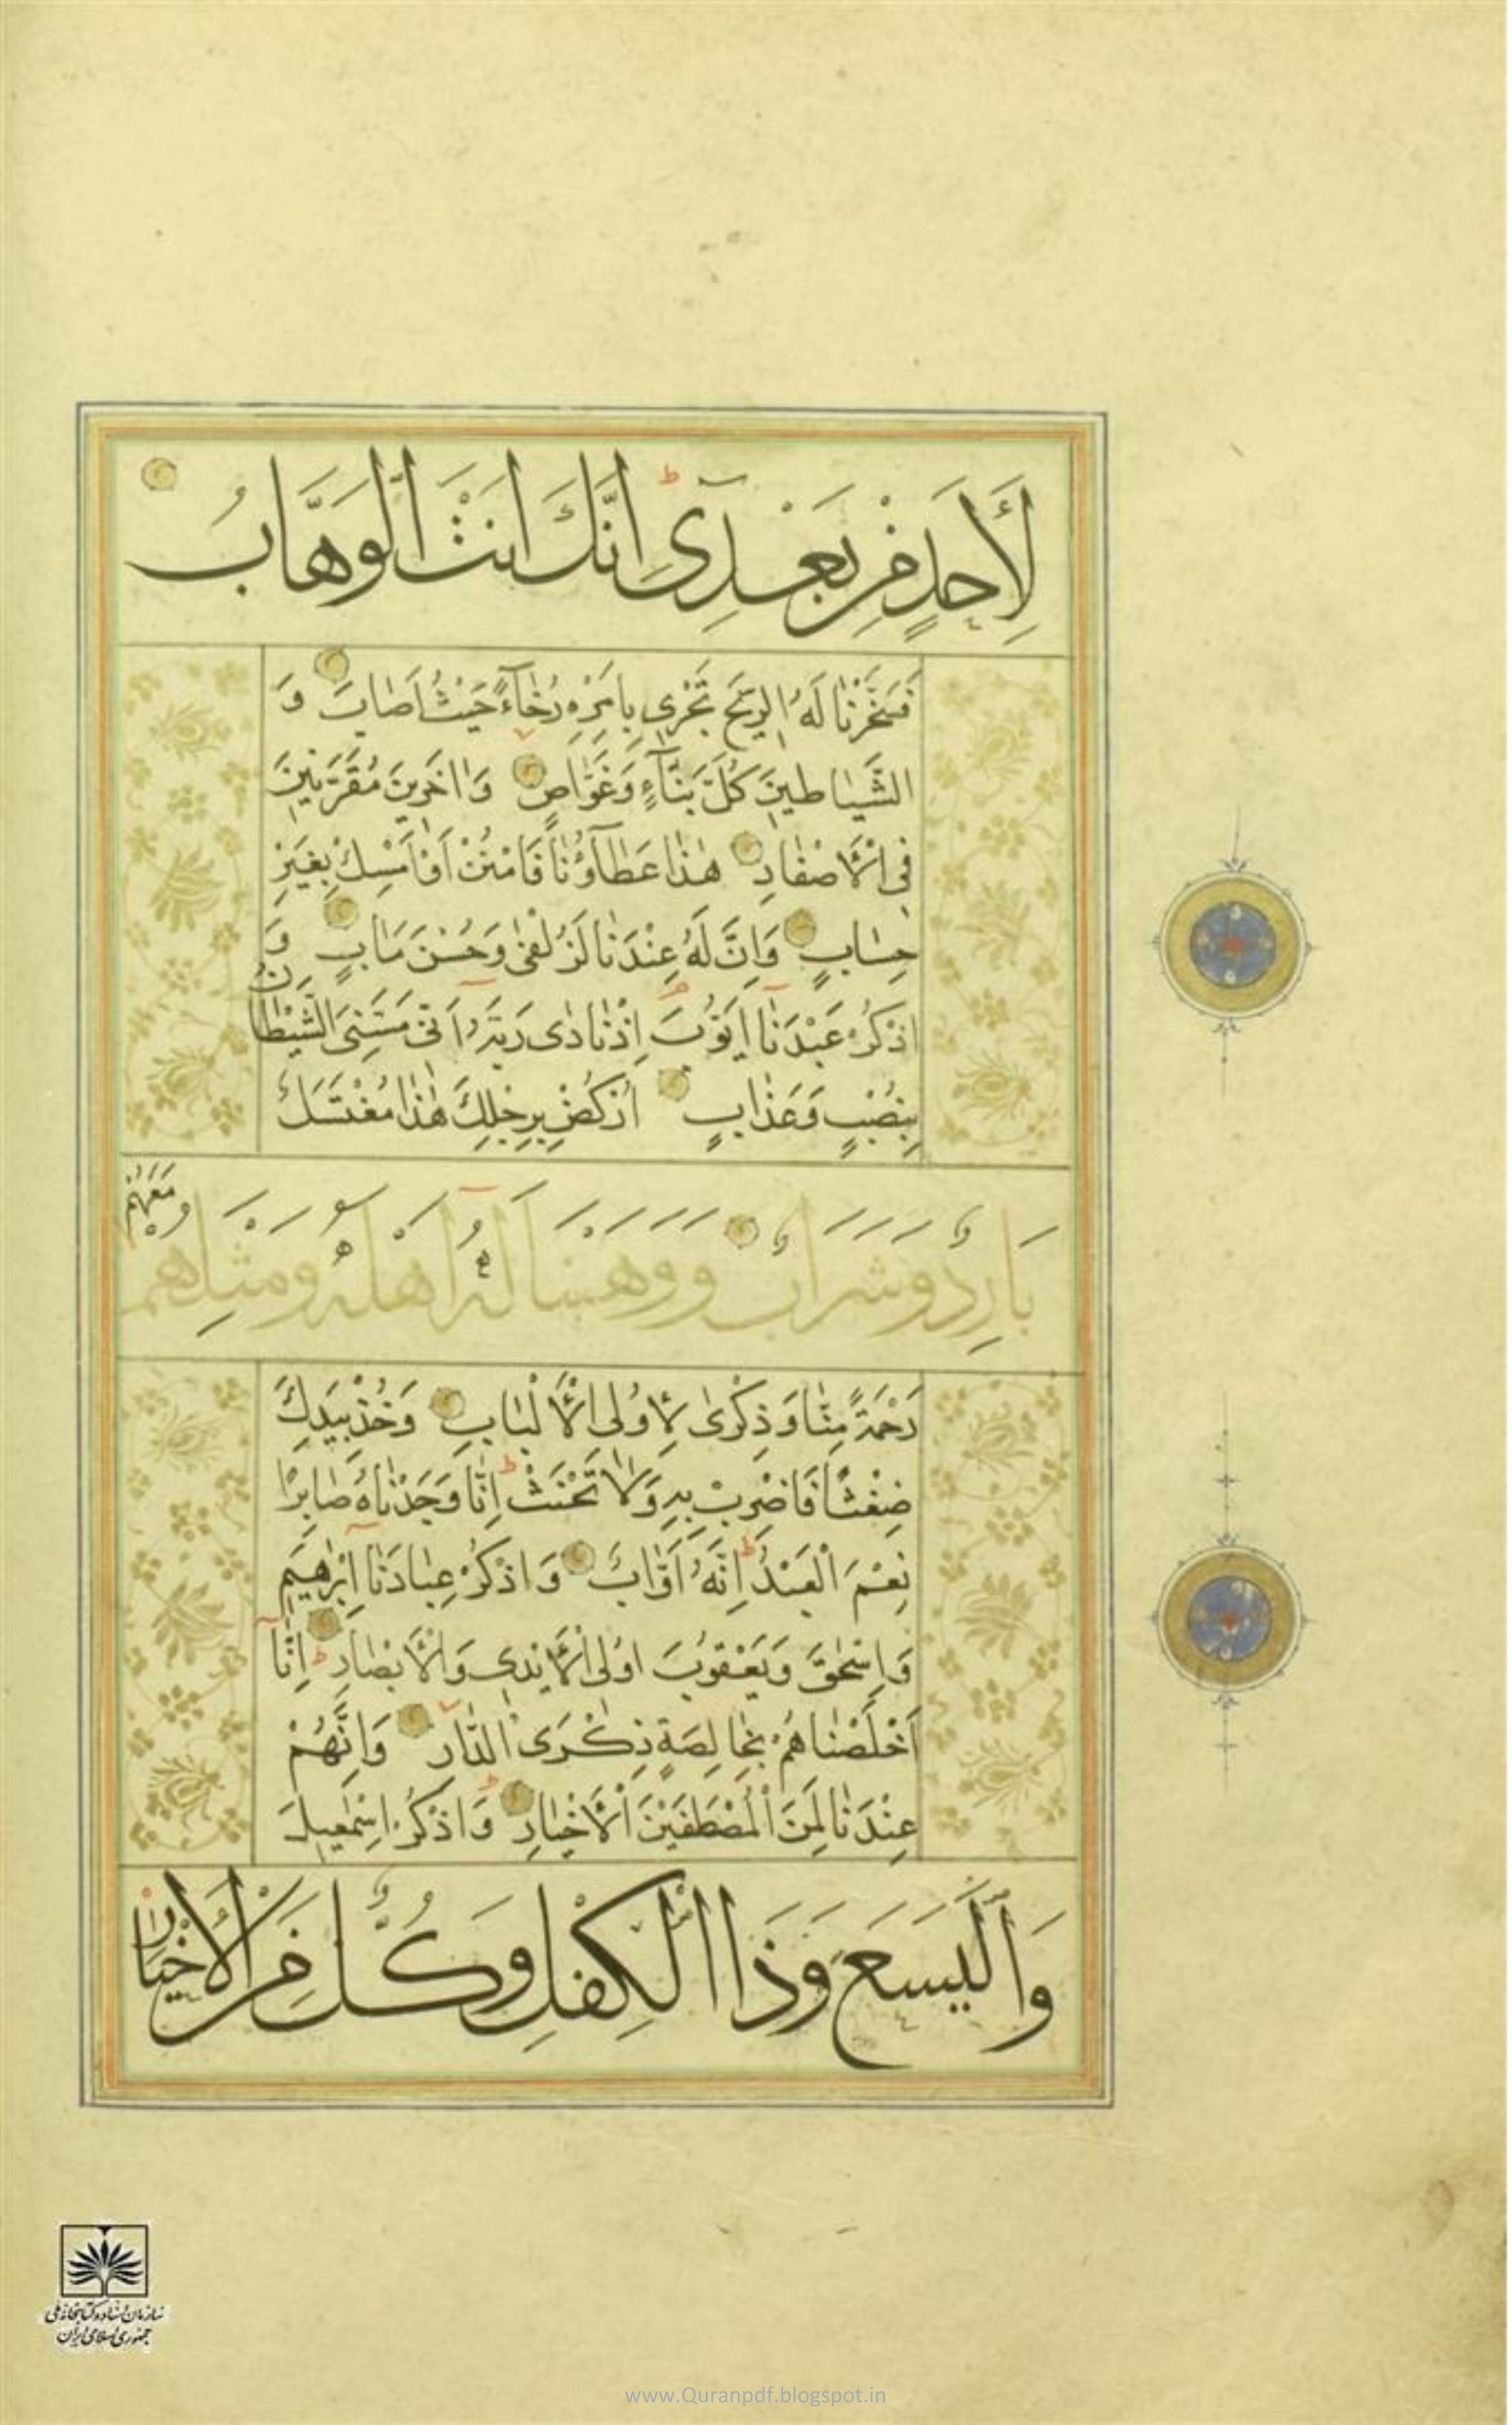 لِأَحَدٍ مِنْ بَعْدِي إِنَّكَ أَنْتَ الْوَهَّابُ
فَسَخَّرْنَا لَهُ الرِّيحَ تَجْرِي بِأَمْرِهِ رُخَاءً حَيْثُ أَصَابَ وَ
الشَّيَاطِينَ كُلَّ بَنَّاءٍ وَغَوَّاصٍ وَآخَرِينَ مُقَرَّنِينَ
فِي الْأَصْفَادِ هٰذَا عَطَاؤُنَا فَامْنُنْ أَوْ أَمْسِكْ بِغَيْرِ
حِسَابٍ وَإِنَّ لَهُ عِنْدَنَا لَزُلْفَىٰ وَحُسْنَ مَآبٍ وَ
اذْكُرْ عَبْدَنَا أَيُّوبَ إِذْ نَادَىٰ رَبَّهُ أَنِّي مَسَّنِيَ الشَّيْطَانُ
بِنُصْبٍ وَعَذَابٍ ارْكُضْ بِرِجْلِكَ هٰذَا مُغْتَسَلٌ
بَارِدٌ وَشَرَابٌ وَوَهَبْنَا لَهُ أَهْلَهُ وَمِثْلَهُمْ مَعَهُمْ
رَحْمَةً مِنَّا وَذِكْرَىٰ لِأُولِي الْأَلْبَابِ وَخُذْ بِيَدِكَ
ضِغْثًا فَاضْرِبْ بِهِ وَلَا تَحْنَثْ إِنَّا وَجَدْنَاهُ صَابِرًا
نِعْمَ الْعَبْدُ إِنَّهُ أَوَّابٌ وَاذْكُرْ عِبَادَنَا إِبْرٰهِيمَ
وَإِسْحٰقَ وَيَعْقُوبَ أُولِي الْأَيْدِي وَالْأَبْصَارِ إِنَّا
أَخْلَصْنَاهُمْ بِخَالِصَةٍ ذِكْرَى الدَّارِ وَإِنَّهُمْ
عِنْدَنَا لَمِنَ الْمُصْطَفَيْنَ الْأَخْيَارِ وَاذْكُرْ إِسْمٰعِيلَ
وَالْيَسَعَ وَذَا الْكِفْلِ وَكُلٌّ مِنَ الْأَخْيَارِ
سازمان اسناد و کتابخانه ملی
جمهوری اسلامی ایران
www.Quranpdf.blogspot.in